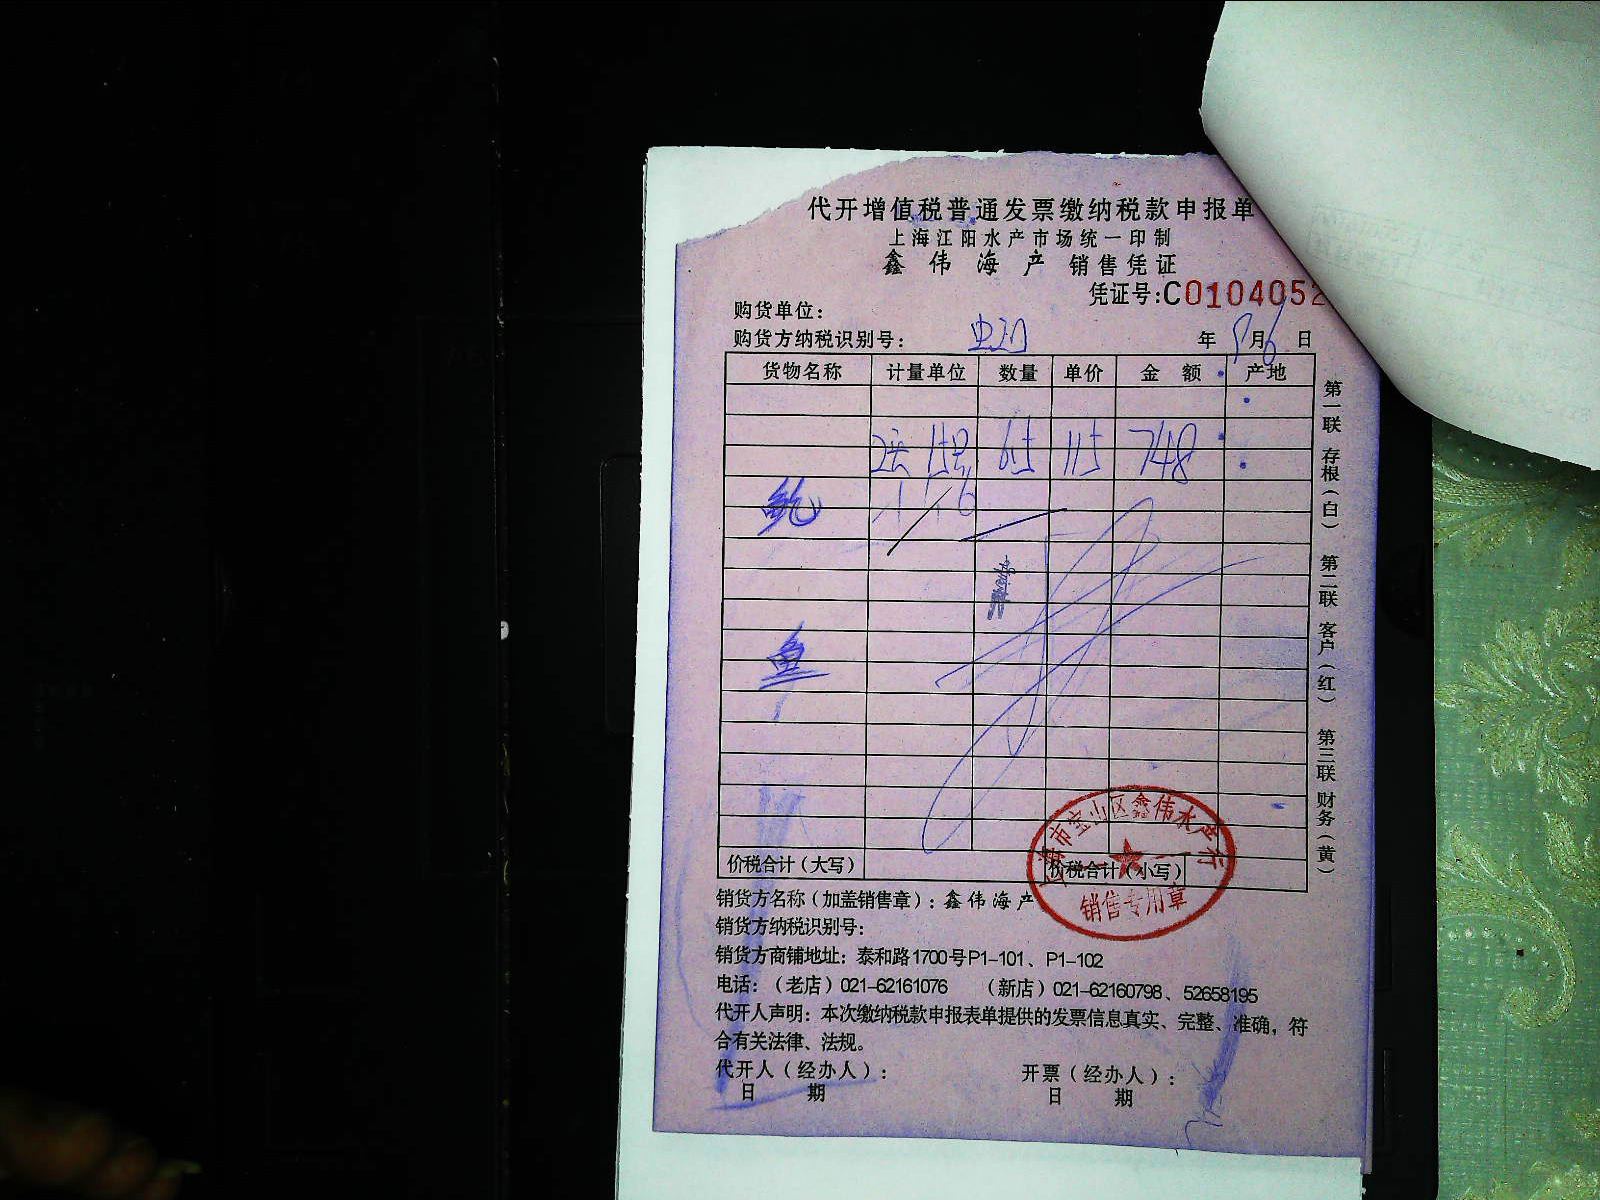 代开增值税普通发票缴纳税款申报单
上海江阳水产市场统一印制
鑫伟海产 销售凭证
凭证号:C0104052
购货单位:
购货方纳税识别号: 年 8月6日
货物名称 计量单位 数量 单价 金额 产地
15 65 115 748
鲍
鱼
价税合计（大写） 价税合计（小写）
上海市宝山区鑫伟水产行
销售专用章
销货方名称（加盖销售章）: 鑫伟海产
销货方纳税识别号:
销货方商铺地址: 泰和路1700号P1-101、P1-102
电话:（老店）021-62161076 （新店）021-62160798、52658195
代开人声明: 本次缴纳税款申报表单提供的发票信息真实、完整、准确，符
合有关法律、法规。
代开人（经办人）: 开票（经办人）:
日 期 日 期
第一联 存根（白） 第二联 客户（红） 第三联 财务（黄）